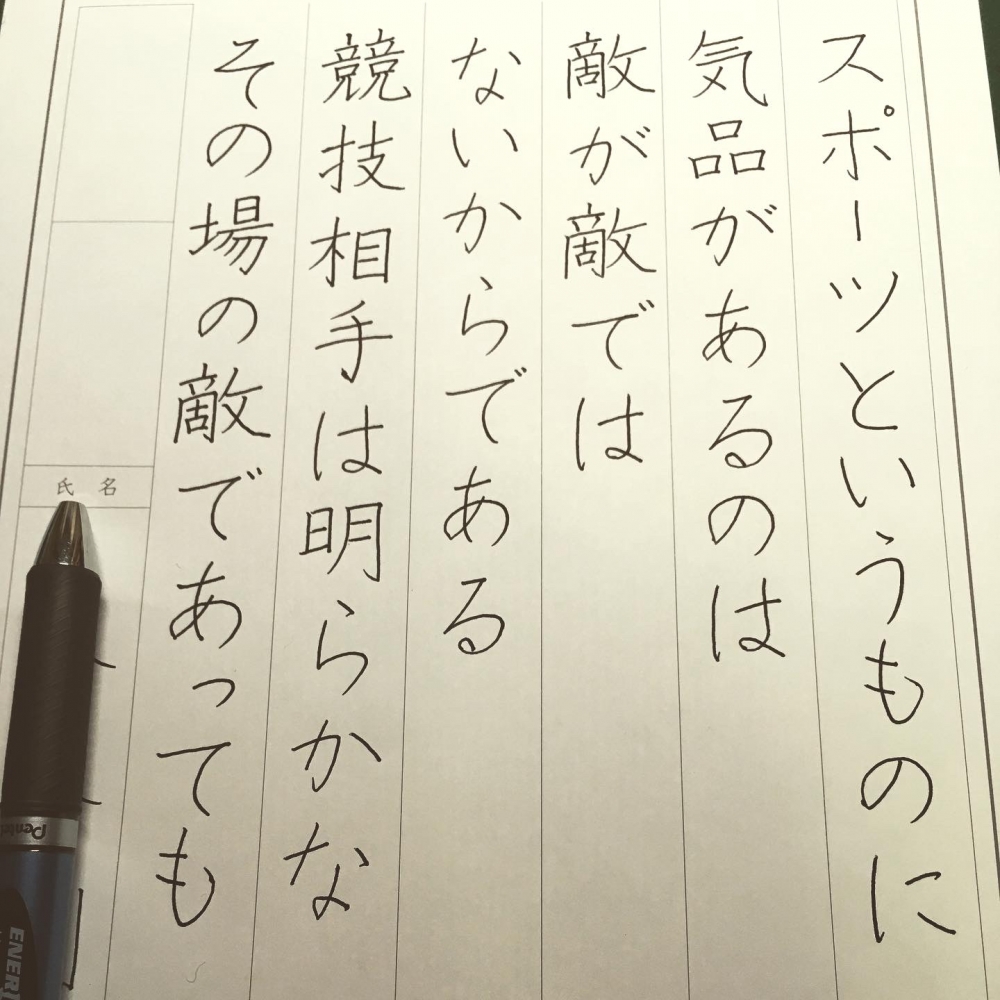 スポーツというものに
気品があるのは
敵が敵では
ないからである
競技相手は明らかな
その場の敵であっても
氏名
Pentel
ENER